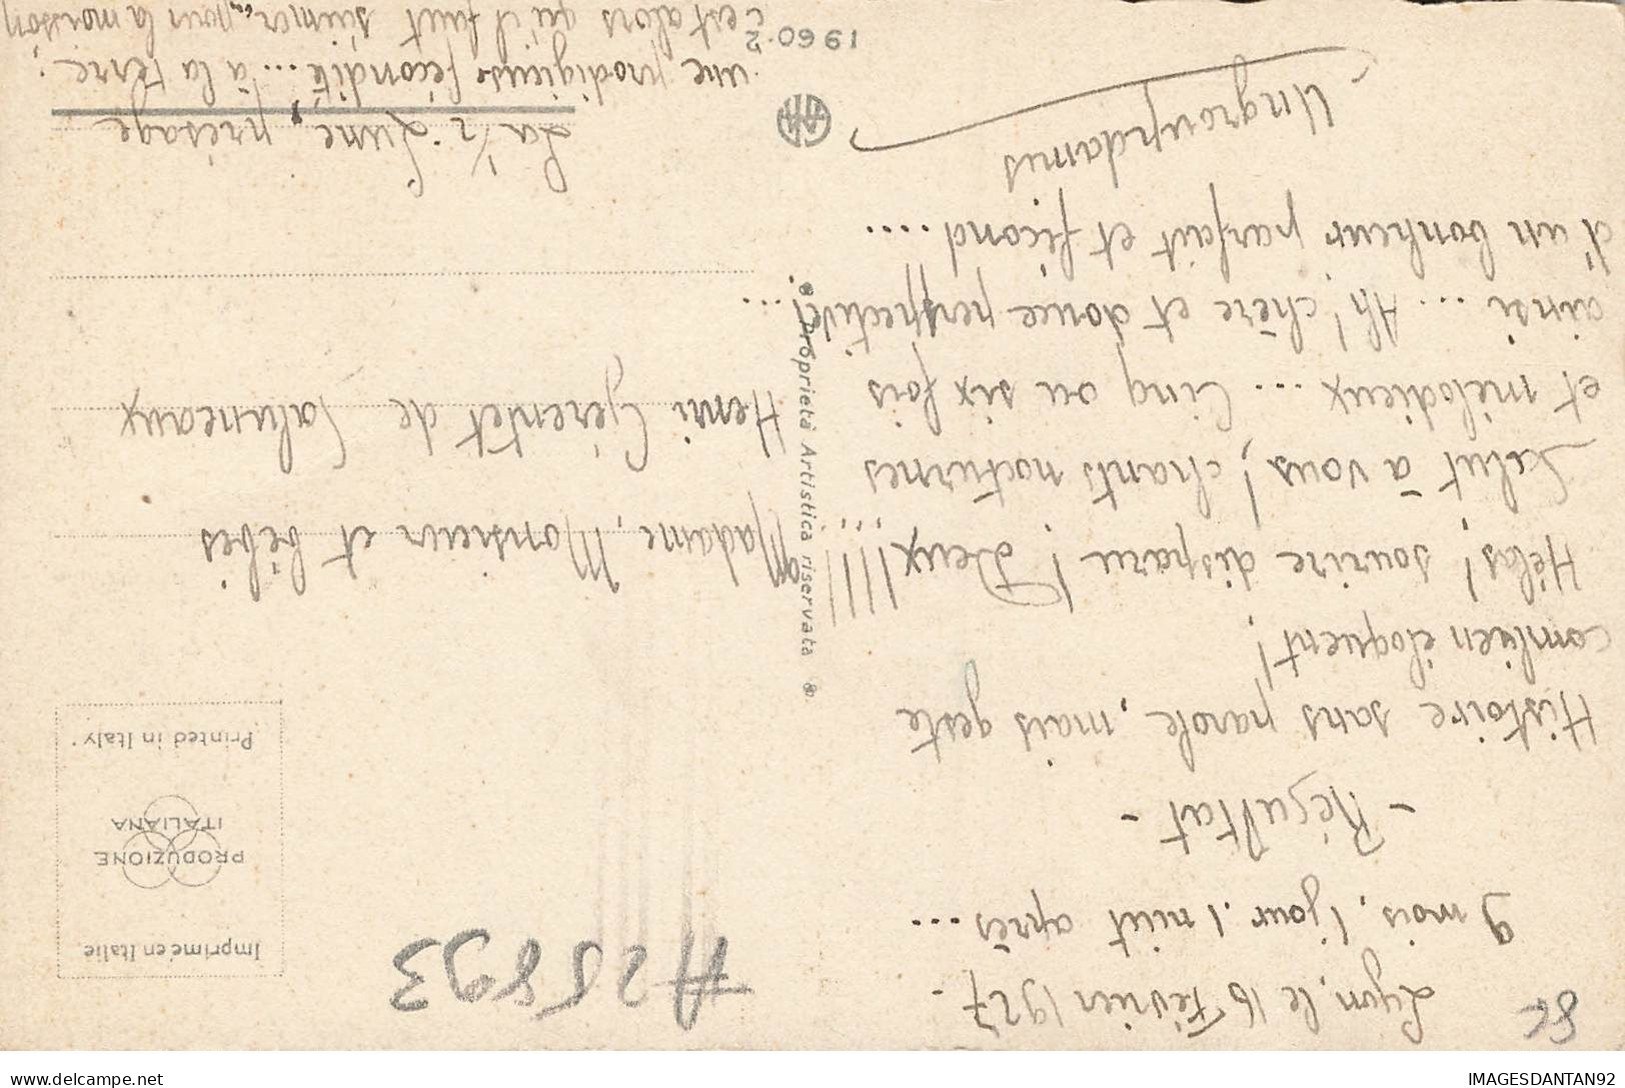 8€
Lyon, le 16 Février 1927 -
9 mois, 1 jour, 1 nuit après ...
- Résultat -
Histoire sans parole, mais geste
combien éloquent !
Hélas ! sourire disparu ! Deux !!! ...
Salut à vous, chants nocturnes
et mélodieux ... Cinq ou six fois
ainsi ... Ah ! chère et douce perspective ! ...
d'un bonheur parfait et fécond ....
A25893
Imprimé en Italie
PRODUZIONE
ITALIANA
Printed in Italy
Proprietà Artistica riservata
Madame, Monsieur et bébés
Henri Gérentet de Saluneaux
La 1/2 Lune, présage
une prodigieuse fécondité ... à la terre.
c'est alors qu'il faut semer, pour la moisson
1960-2
IMAGESDANTAN92
delcampe.net